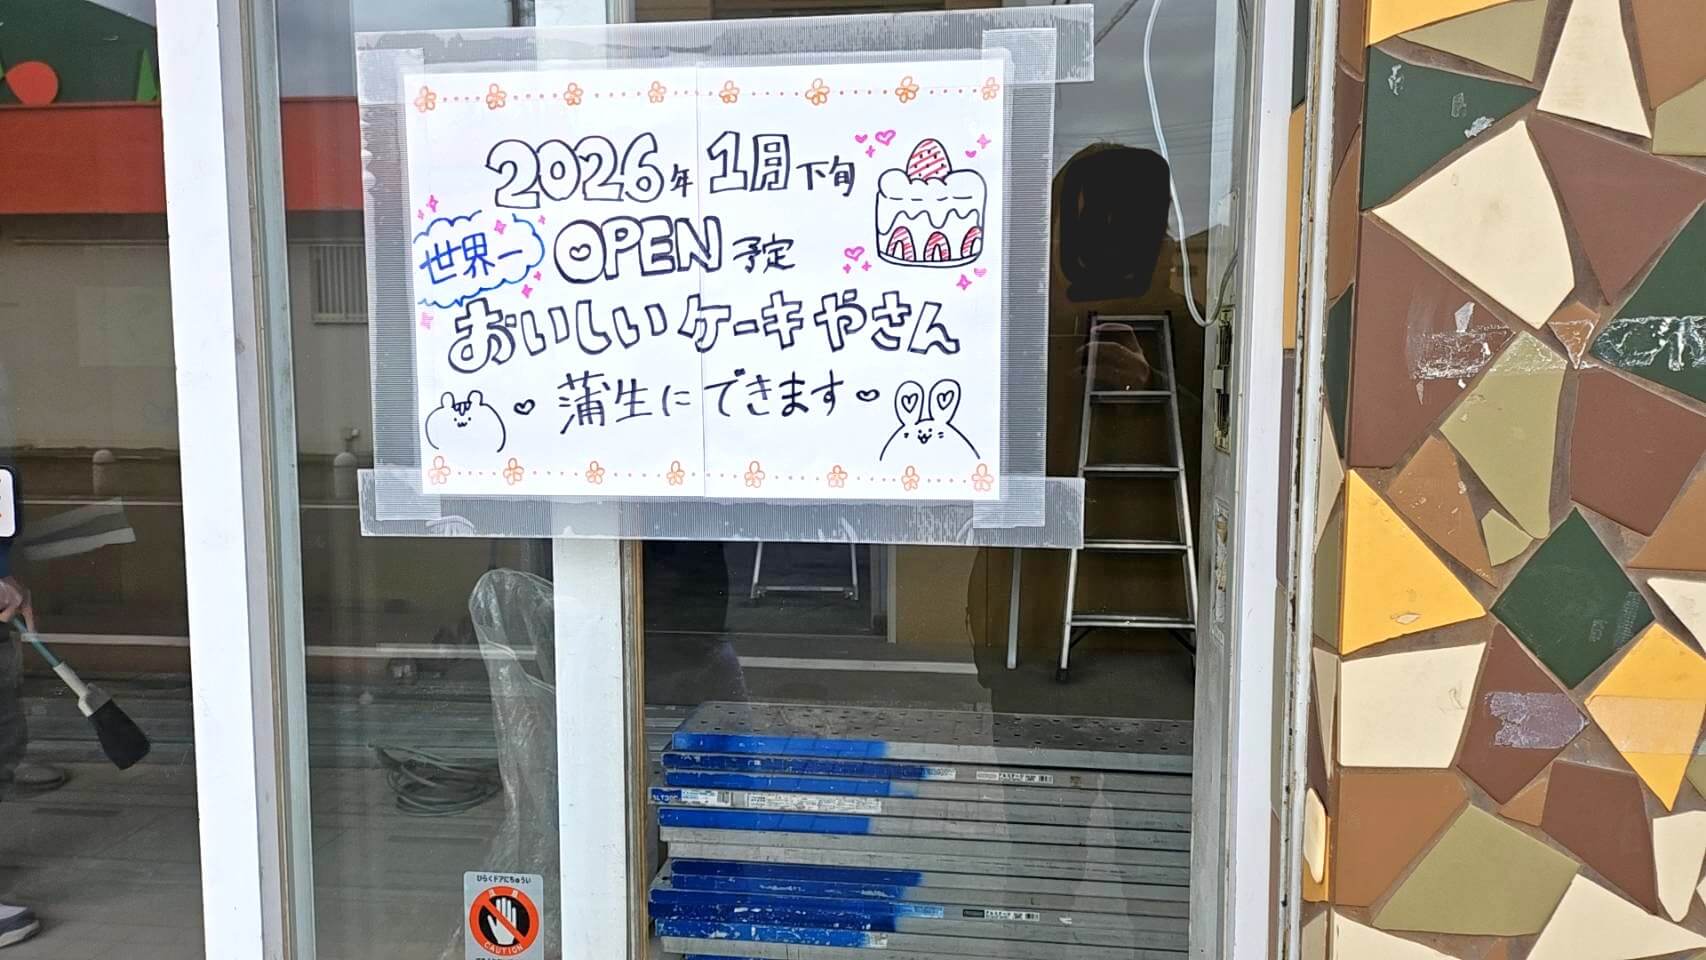 2026年 1月下旬
世界一
OPEN予定
おいしいケーキやさん
蒲生にできます
ひらくドアにちゅうい
CAUTION